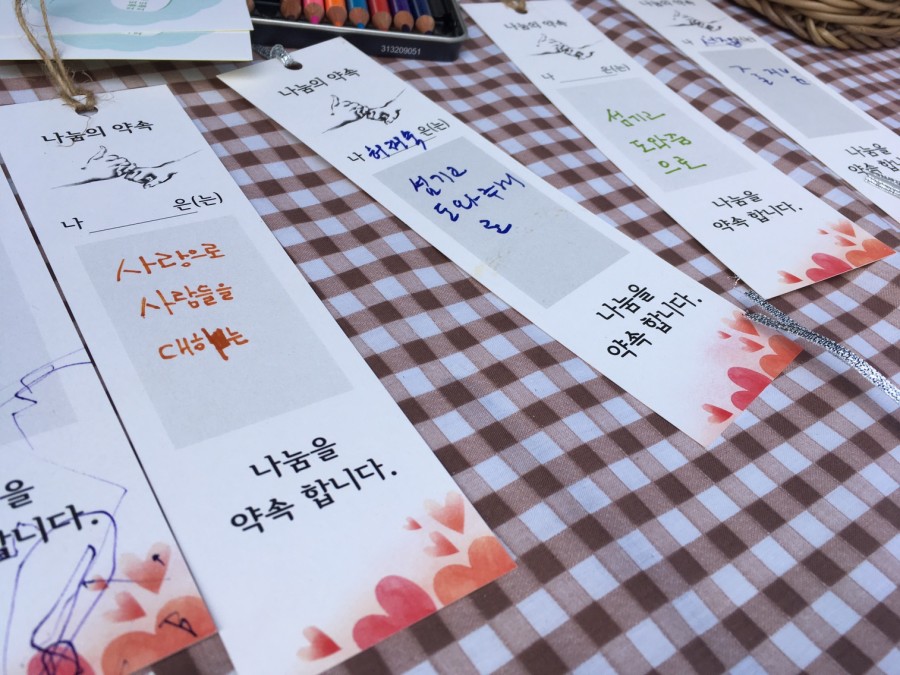 을
합니다.
나눔의 약속
나 은(는)
사랑으로
사람들을
대하는
나눔을
약속 합니다.
313209051
나눔의 약속
나 은(는)
섬기고
도와주기
로
나눔을
약속 합니다.
나눔의 약속
나 은(는)
섬기고
도와줌
으로
나눔을
약속 합니다.
나눔의 약속
나 은(는)
나눔을
약속 합니